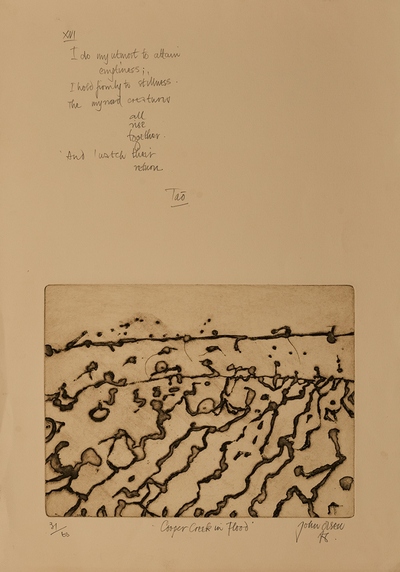 XVI
I do my utmost to attain
emptiness;
I hold firmly to stillness.
The myriad creatures
all
rise
together.
And I watch their
return
Tao
31/60
'Cooper Creek in Flood'
John Olsen